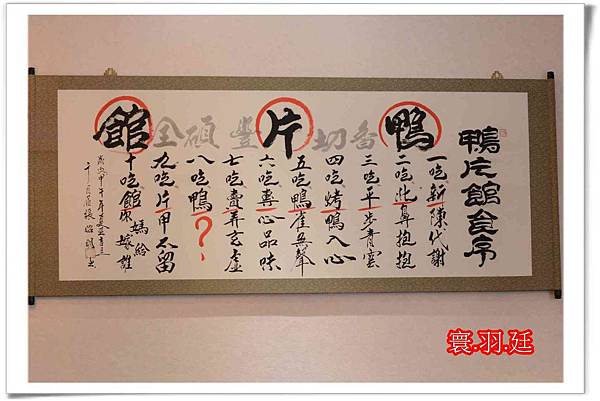 鴨片館全席
鴨香切片豐碩全館
一吃新陳代謝
二吃此鼻抱抱
三吃平步青雲
四吃烤鴨入心
五吃鴨雀無聲
六吃專心品味
七吃賣弄玄虛
八吃鴨？
九吃片甲不留
十吃館你媽給嫁誰
寰.羽.廷